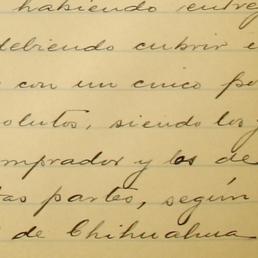 habiendo entreg
debiendo cubrir e
con un cinco po
olutos, siendo los g
omprador y los de
tas partes, según
de Chihuahua